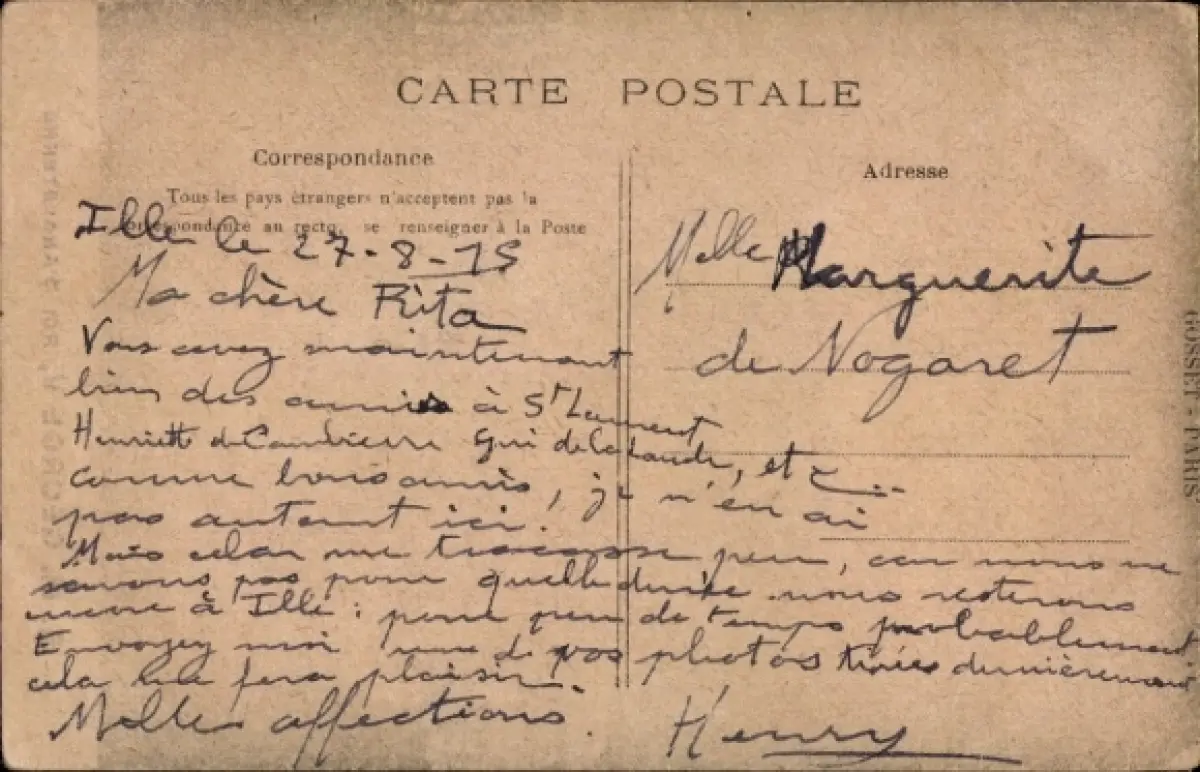 CARTE POSTALE
Correspondance
Tous les pays étrangers n'acceptent pas la
correspondance au recto, se renseigner à la Poste
Adresse
Ille le 27-8-15
Ma chère Rita
Vous avez maintenant
bien des amis à St Laurent
Henriette de Gui de Lalande, et
comme bons amis, je n'en ai
pas autant ici!
Mais cela me tracasse peu, car nous ne
savons pas pour quelle durée nous resterons
encore à Ille : pour peu de temps probablement.
Envoyez moi une de vos photos tirées dernièrement
cela me fera plaisir.
Milles affections
Henry
Melle Marguerite
de Nogaret
GOSSET - PARIS